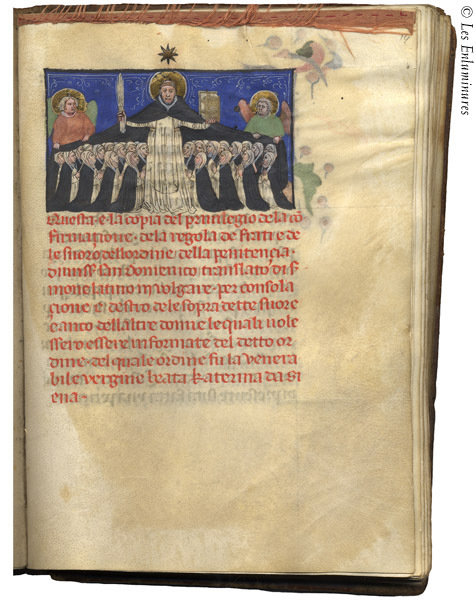 Questa e la copia del privilegio de la cō
firmaçione · de la regola de frati e de
le suoro dellordine della penitençia ·
di miss̄ san Domenico translato di s̄
mone latino in vulgare · per consola
çione e destro de le sopra dette suore
e anco dellaltre donne le quali voles
sero essere informate del detto or
dine · del quale ordine fu la venera
bile vergine beata Katerina da Si
ena ·
© Les Enluminures